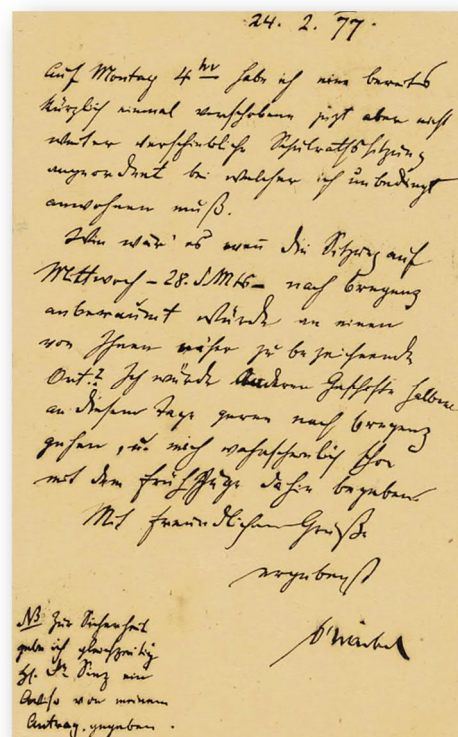 24. 2. 77.
Auf Montag 4 Uhr habe ich eine bereits
kürzlich einmal verschobene jezt aber nicht
weiter verschiebliche Schulrathssitzung
angeordnet bei welcher ich unbedingt
anwohnen muß.
Wie wär' es wenn die Sitzung auf
Mittwoch – 28. d. Mts – nach Bregenz
anberaumt würde an einen
von Ihnen näher zu bezeichnende
Ort.? Ich würde anderen Geschäfte halber
an diesem Tage gerne nach Bregenz
gehen, u. mich wahrscheinlich schon
mit dem Frühzuge dahin begeben.
Mit freundlichem Gruße
ergebenst
NB Zur Sicherheit
habe ich gleichzeitig
H. Dr. Sinz ein
Aviso von meinem
Antrag gegeben.